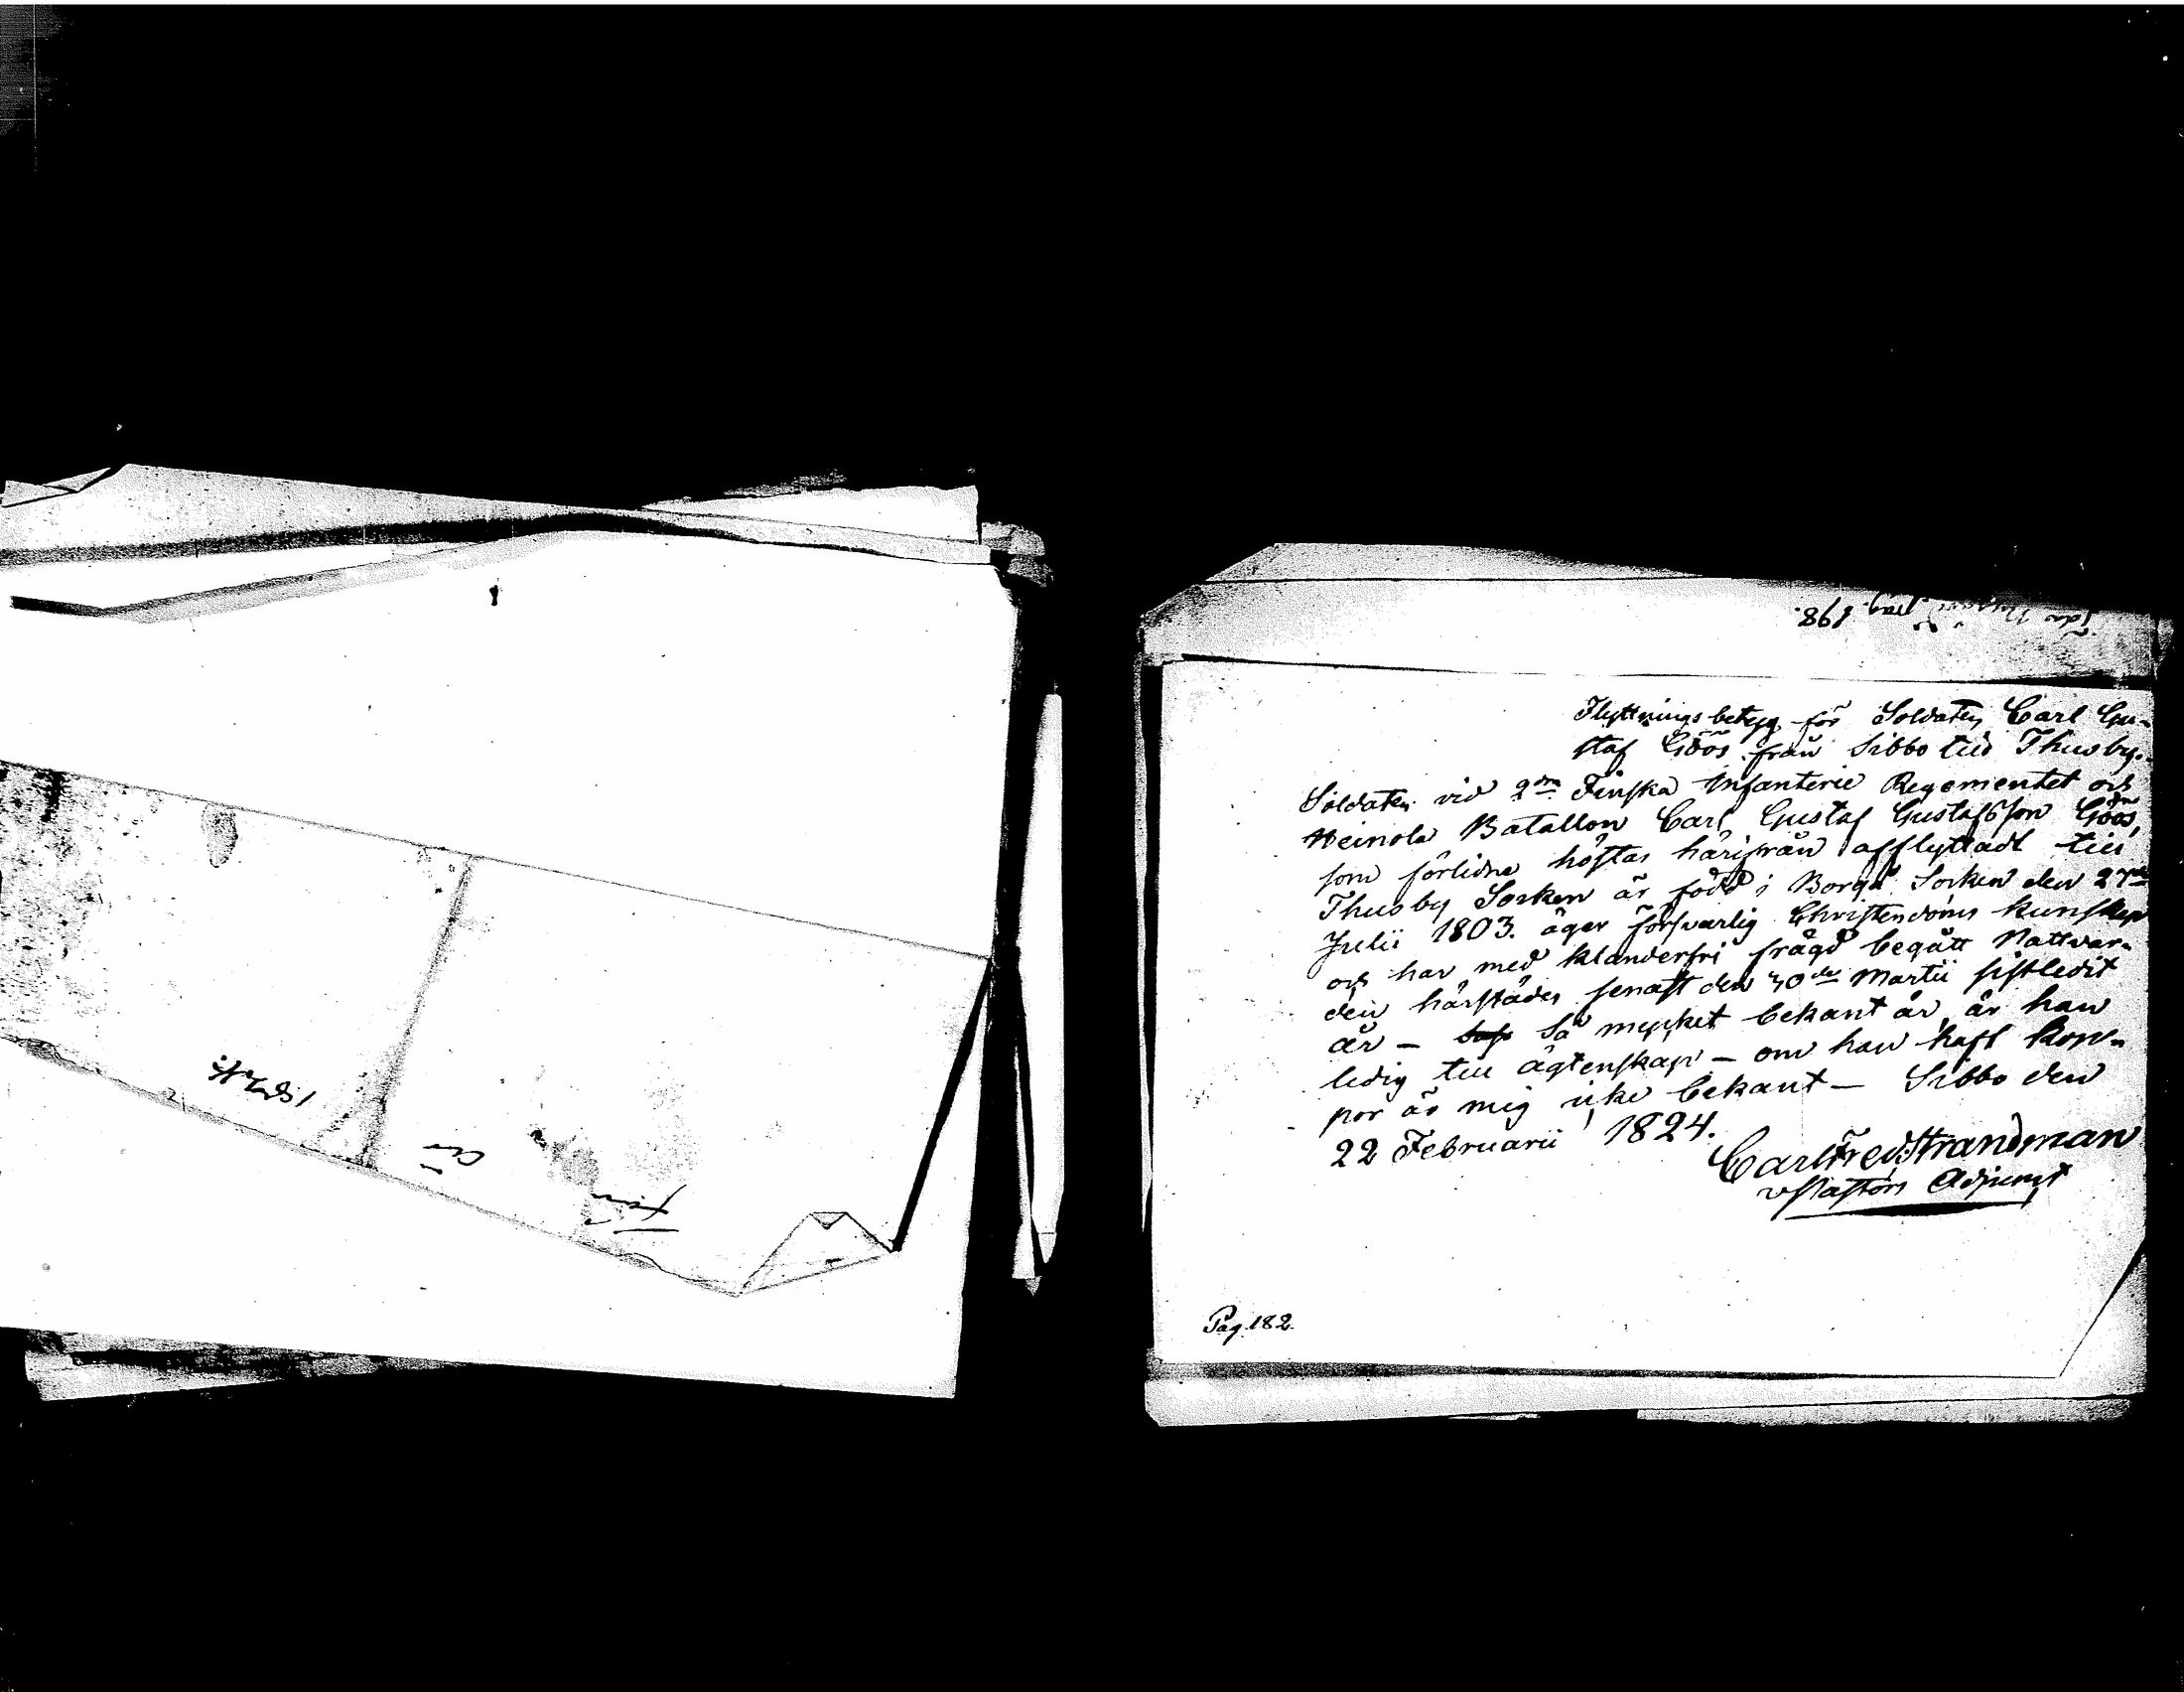 1824.
198.
Flyttnings betyg för Soldaten Carl Gu-
staf Göös från Sibbo till Thusby.
Soldaten vid 2dra Finska Infanterie Regementet och
Heinola Batallon Carl Gustaf Gustafsson Göös,
som förlidne höstas härifrån afflyttadt till
Thusby Socken är född i Borgå Socken den 27de
Julii 1803. äger försvarlig Christendoms kunskap
och har med klanderfri frägd begått Nattvar-
den härstädes senast den 30de Martii sistledit
år - Så mycket bekant är, är han
ledig till ägtenskap - om han haft kop-
por är mig icke bekant - Sibbo den
22 Februarii 1824.
Carl Fred: Strandman
v Pastors Adjunct
Pag. 182.